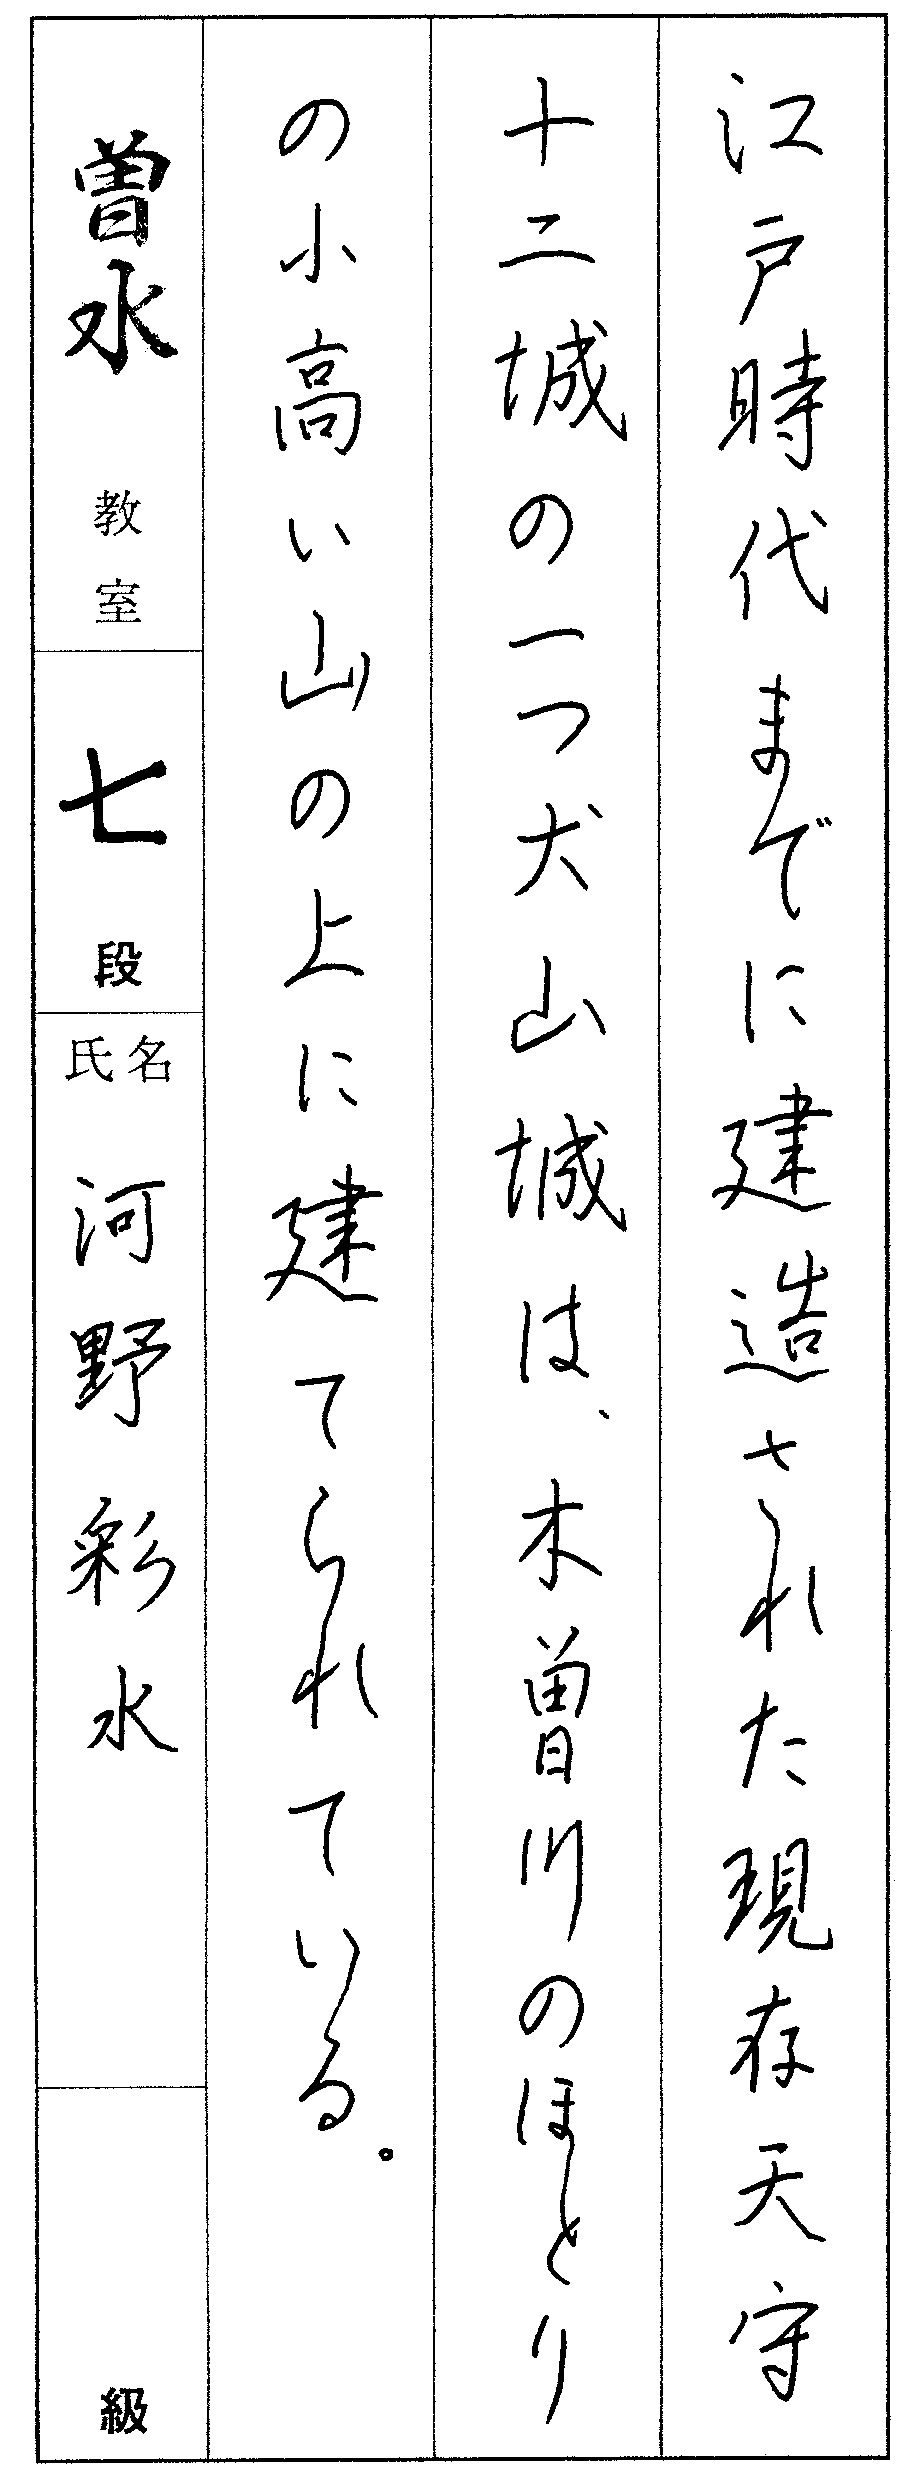 江戸時代までに建造された現存天守
十二城の一つ犬山城は、木曽川のほとり
の小高い山の上に建てられている。
曽水教室
七段
氏名 河野彩水
級